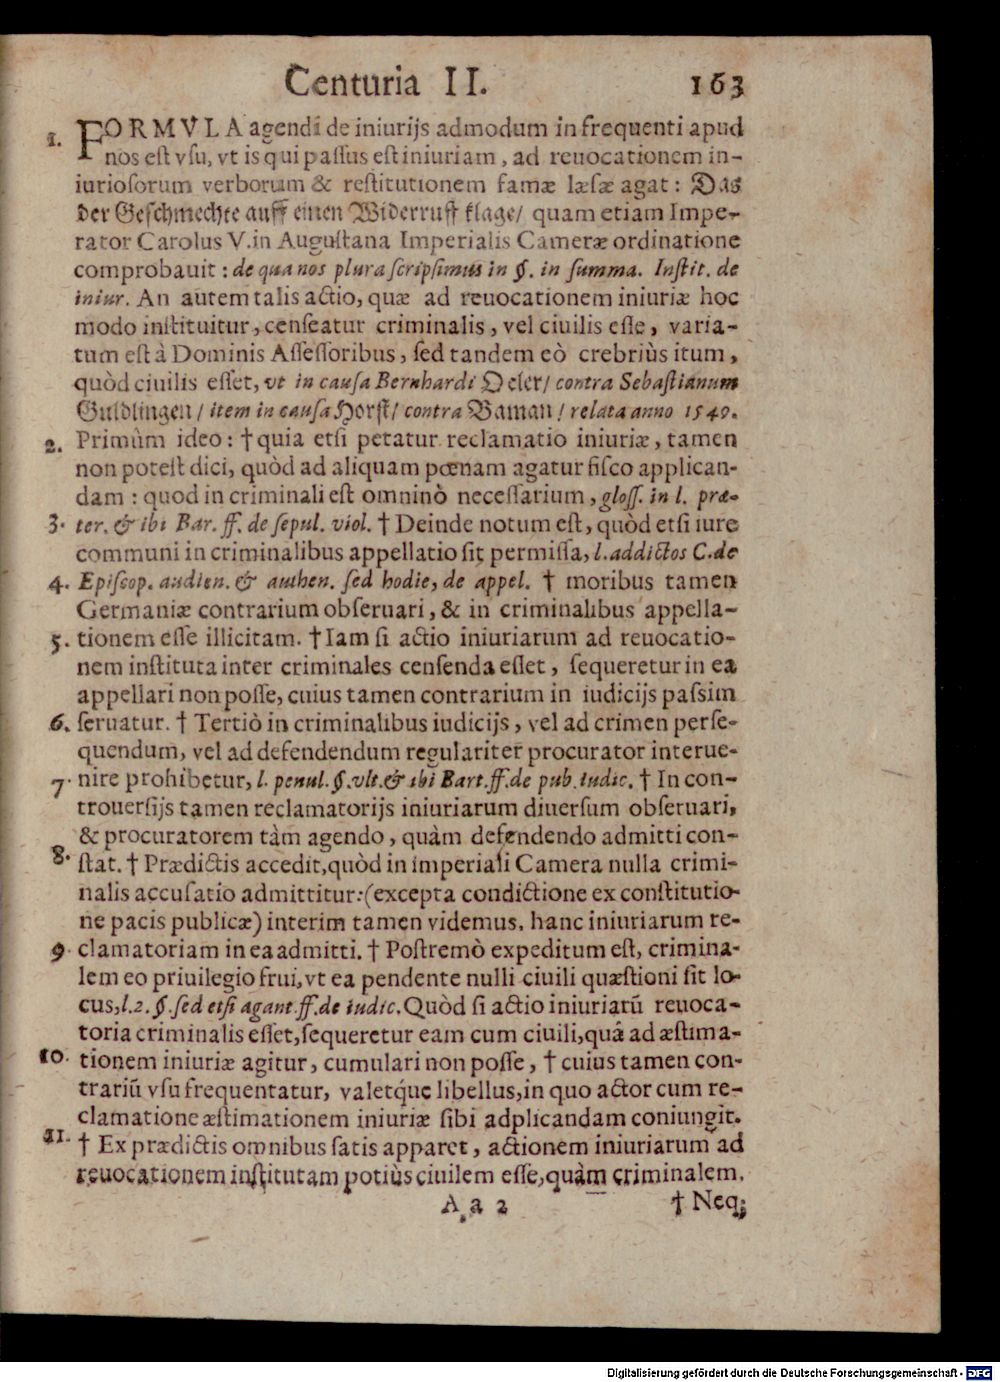 Centuria II. 163
1. FORMVLA agendi de iniurijs admodum in frequenti apud
nos est vsu, vt is qui passus est iniuriam, ad reuocationem in-
iuriosorum verborum & restitutionem famæ læsæ agat: Das
der Geschmechte auff einen Widerruff klage/ quam etiam Impe-
rator Carolus V. in Augustana Imperialis Cameræ ordinatione
comprobauit: de qua nos plura scripsimus in §. in summa. Instit. de
iniur. An autem talis actio, quæ ad reuocationem iniuriæ hoc
modo instituitur, censeatur criminalis, vel ciuilis esse, varia-
tum est à Dominis Assessoribus, sed tandem eò crebriùs itum,
quòd ciuilis esset, vt in causa Bernhardi Deler/ contra Sebastianum
Guldlingen/ item in causa Horst/ contra Baman/ relata anno 1549.
2. Primùm ideo: † quia etsi petatur reclamatio iniuriæ, tamen
non potest dici, quòd ad aliquam pœnam agatur fisco applican-
dam: quod in criminali est omninò necessarium, gloss. in l. præ-
3. ter. & ibi Bar. ff. de sepul. viol. † Deinde notum est, quòd etsi iure
communi in criminalibus appellatio sit permissa, l. addictos C. de
4. Episcop. audien. & authen. sed hodie, de appel. † moribus tamen
Germaniæ contrarium obseruari, & in criminalibus appella-
5. tionem esse illicitam. † Iam si actio iniuriarum ad reuocatio-
nem instituta inter criminales censenda esset, sequeretur in ea
appellari non posse, cuius tamen contrarium in iudicijs passim
6. seruatur. † Tertiò in criminalibus iudicijs, vel ad crimen perse-
quendum, vel ad defendendum regulariter procurator interue-
7. nire prohibetur, l. penul. §. vlt. & ibi Bart. ff. de pub. iudic. † In con-
trouersijs tamen reclamatorijs iniuriarum diuersum obseruari,
& procuratorem tàm agendo, quàm defendendo admitti con-
8. stat. † Prædictis accedit, quòd in imperiali Camera nulla crimi-
nalis accusatio admittitur: (excepta condictione ex constitutio-
ne pacis publicæ) interim tamen videmus, hanc iniuriarum re-
9. clamatoriam in ea admitti. † Postremò expeditum est, crimina-
lem eo priuilegio frui, vt ea pendente nulli ciuili quæstioni sit lo-
cus, l. 2. §. sed etsi agant ff. de iudic. Quòd si actio iniuriarũ reuoca-
toria criminalis esset, sequeretur eam cum ciuili, quâ ad æstima-
10. tionem iniuriæ agitur, cumulari non posse, † cuius tamen con-
trariũ vsu frequentatur, valetq́ue libellus, in quo actor cum re-
clamatione æstimationem iniuriæ sibi adplicandam coniungit.
11. † Ex prædictis omnibus satis apparet, actionem iniuriarum ad
reuocationem institutam potiùs ciuilem esse, quàm criminalem.
Aa 2 † Neq;
Digitalisierung gefördert durch die Deutsche Forschungsgemeinschaft - DFG